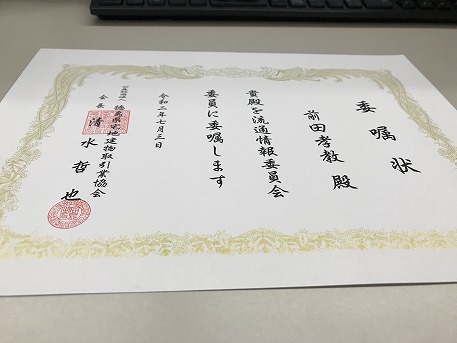 委嘱状
前田孝教殿
貴殿を流通情報委員会
委員に委嘱します
令和三年七月三日
徳島県宅地建物取引業協会
会長 清水哲也